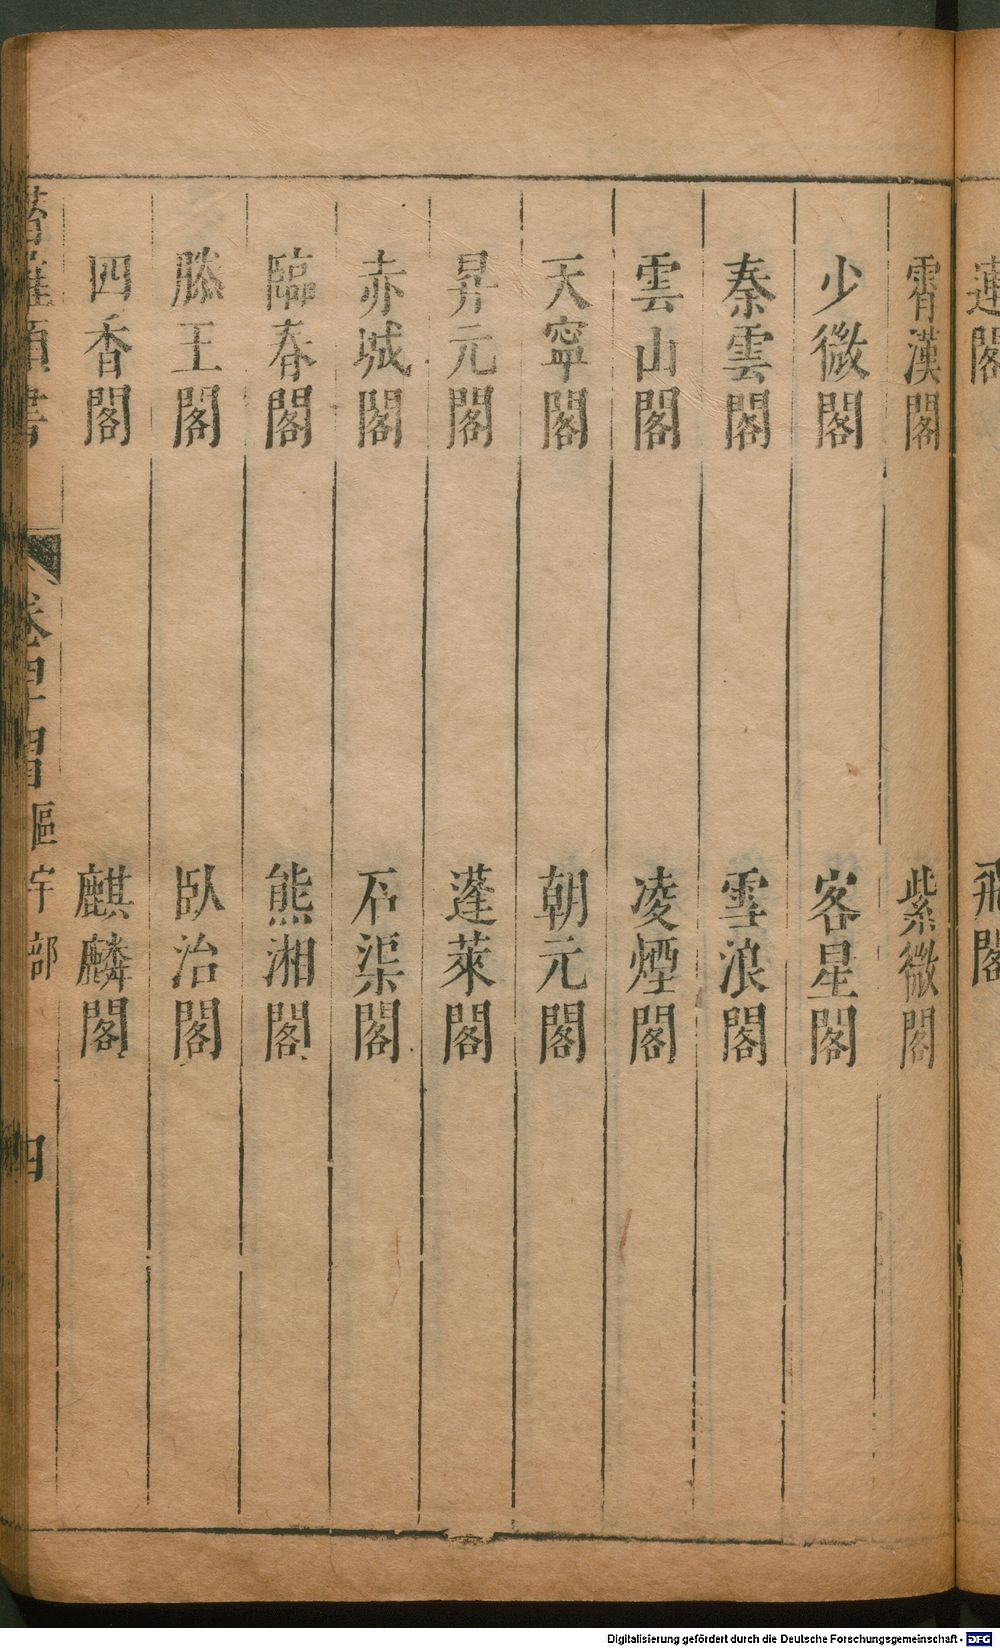 蓮閣
飛閣
霄漢閣
紫微閣
少微閣
客星閣
秦雲閣
雪浪閣
雲山閣
凌煙閣
天寧閣
朝元閣
昇元閣
蓬萊閣
赤城閣
石渠閣
臨春閣
熊湘閣
滕王閣
臥治閣
四香閣
麒麟閣
區宇部
四
Digitalisierung gefördert durch die Deutsche Forschungsgemeinschaft - DFG